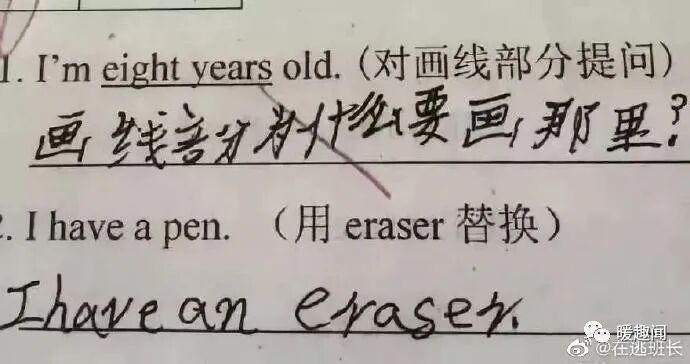 1. I'm eight years old. (对画线部分提问)
画线部分为什么要画那里?
2. I have a pen. （用 eraser 替换）
I have an eraser.
暖趣闻
@在逃班长